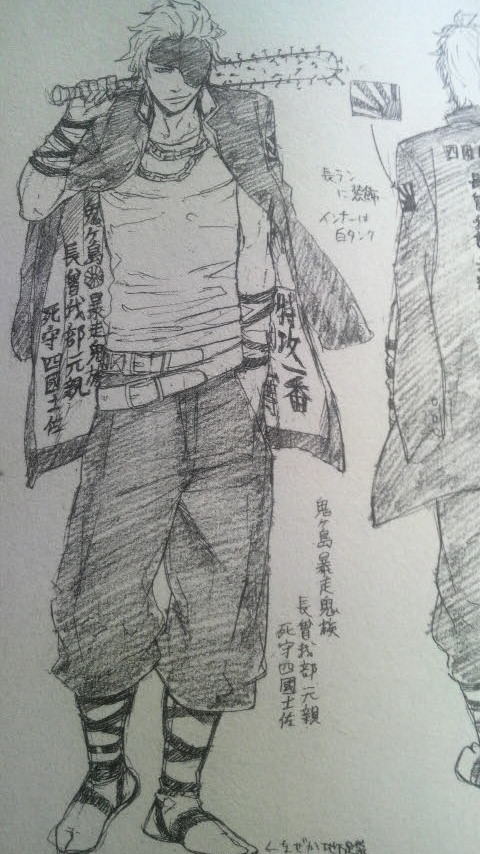 四國
長ラン
に装飾
インナーは
白タンク
鬼ヶ島
暴走鬼族
長曾我部元親
死守四國土佐
特攻一番
鬼ヶ島暴走鬼族
長曾我部元親
死守四國土佐
なぜか地下足袋